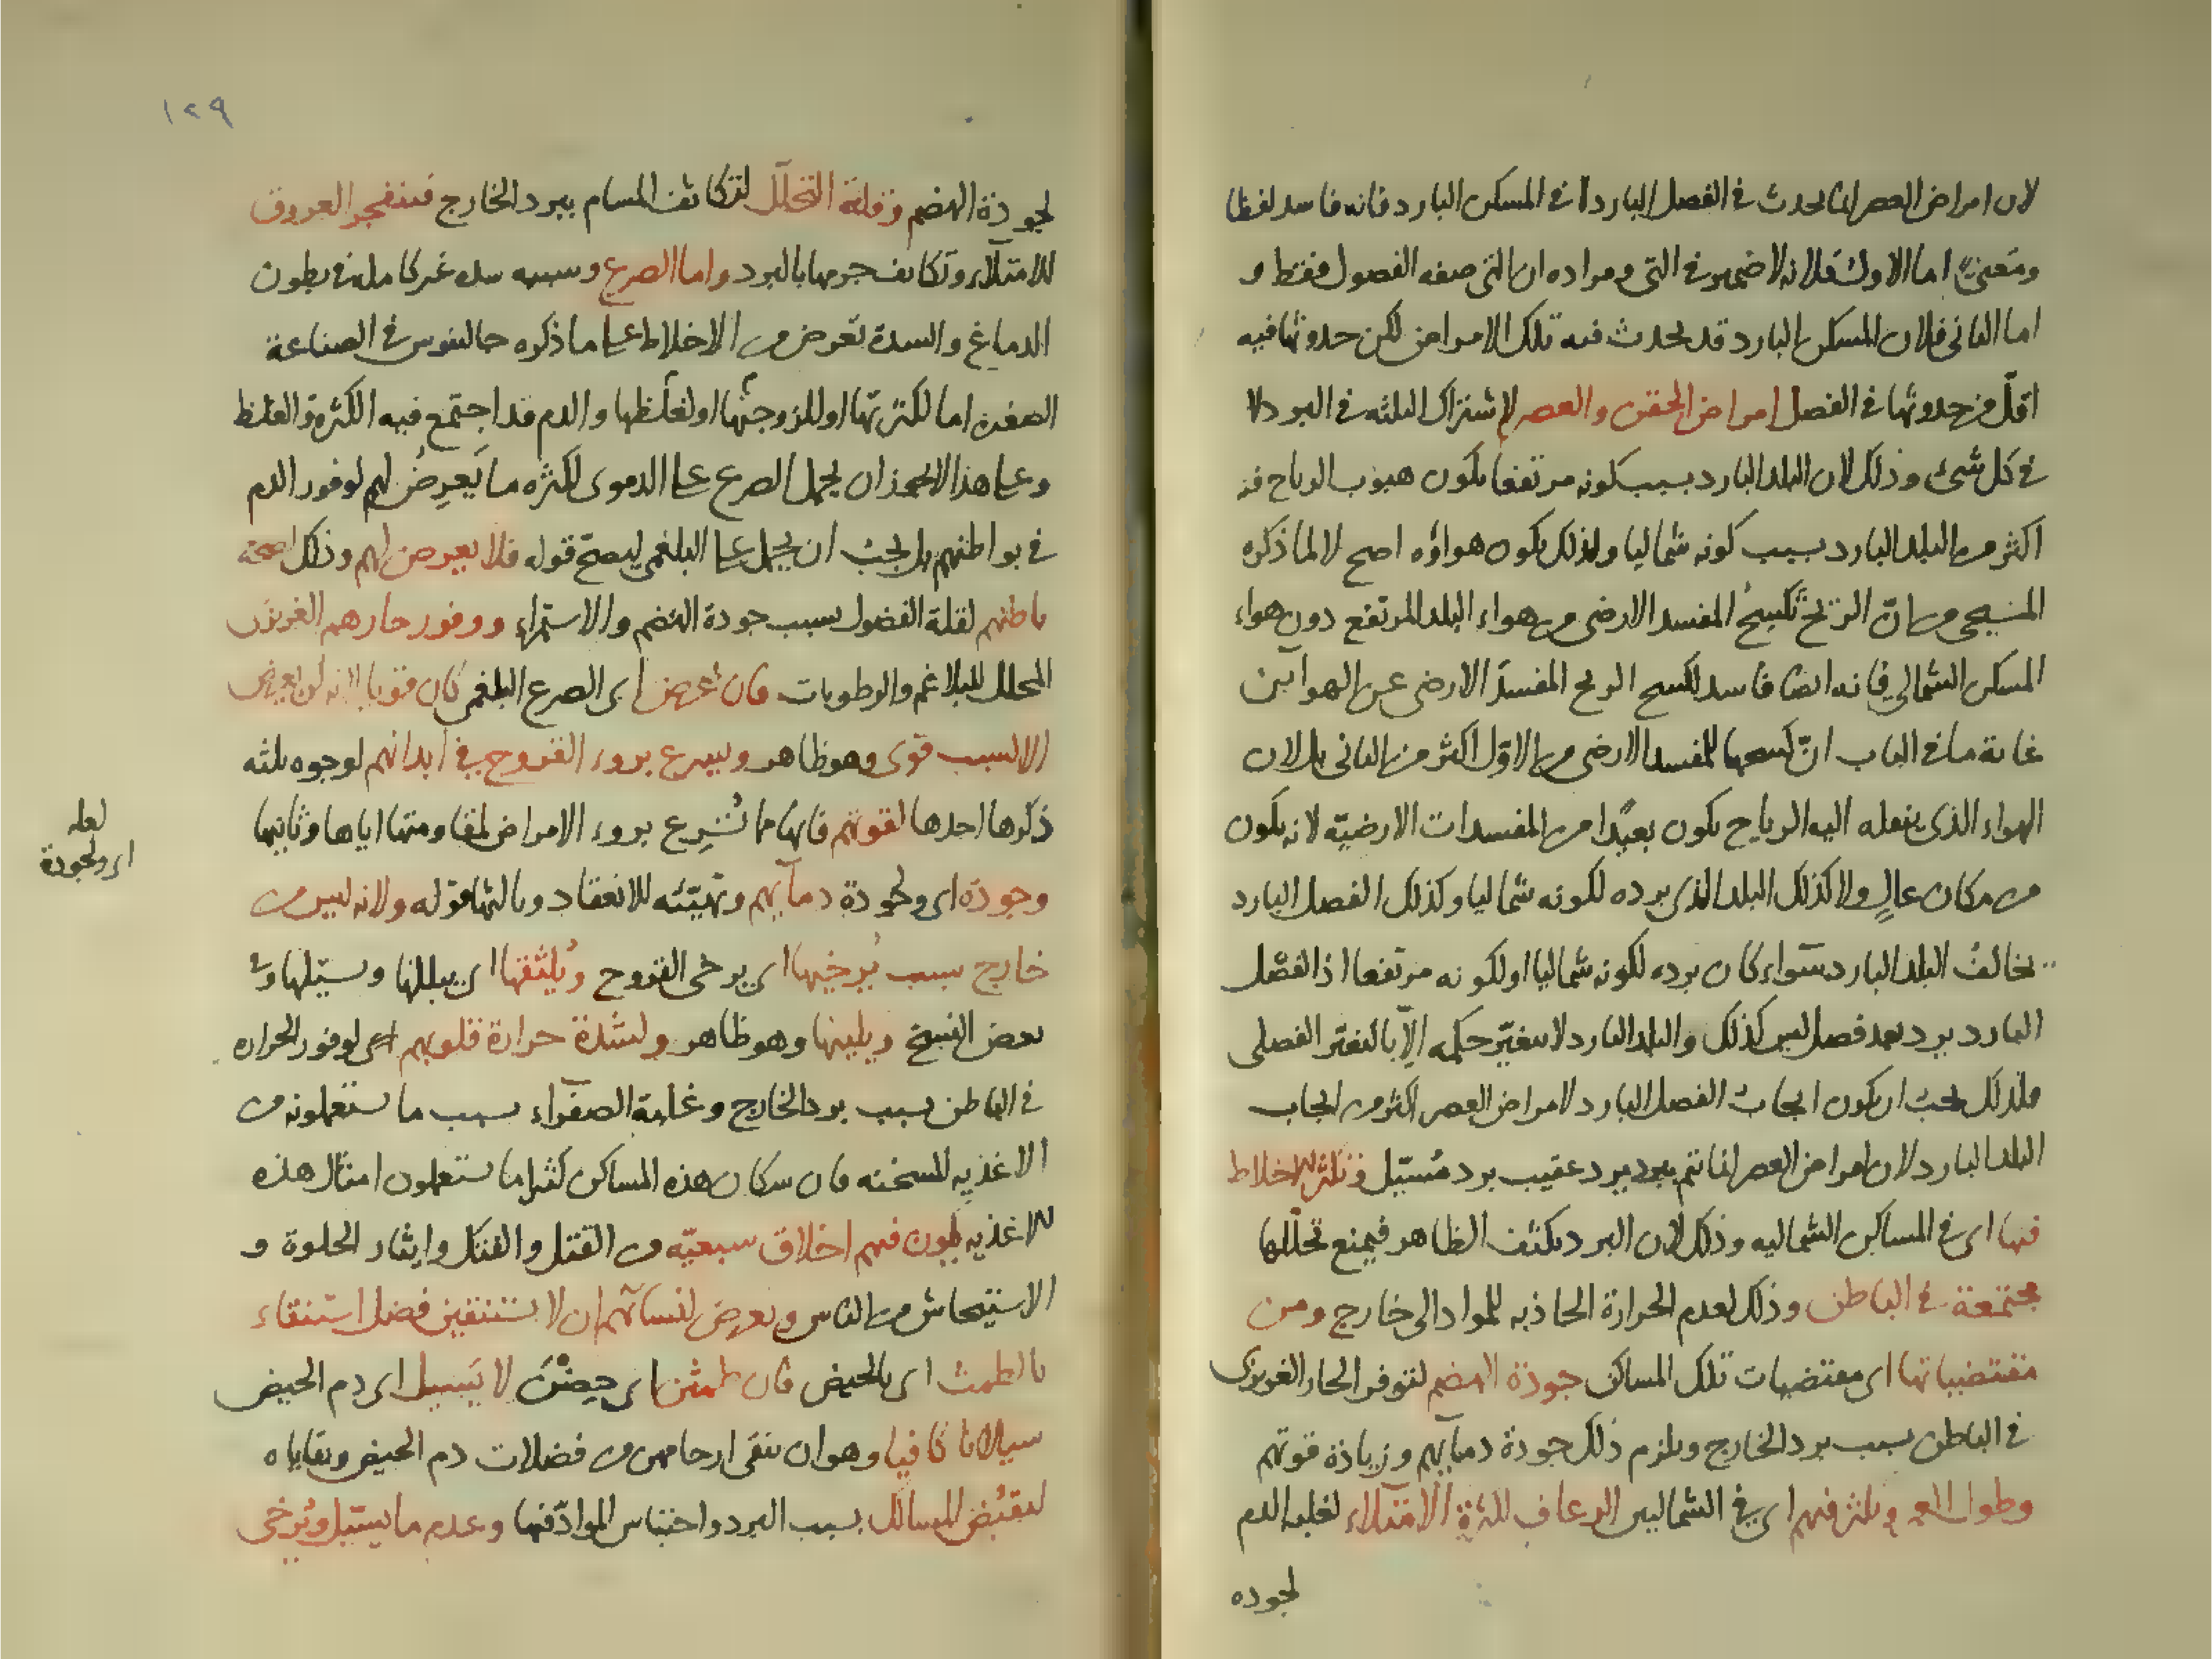 لان امراض العصر انما تحدث في الفصل البارد لا في المسكن البارد فانه فاسد لفظا
ومعنى اما الاول فلانه لا ضمير في التى ومراده ان التى صفه الفصول فقط و
اما الثانى فلان المسكن البارد قد يحدث فيه تلك الامراض لكن حدوثها فيه
اقل من حدوثها في الفصل امراض الحقن والعصر لاشتراك الثلثه في البرد لا
في كل شئ وذلك لان البلد البارد بسبب كونه مرتفعا يكون هبوب الرياح فيه
اكثر من البلد البارد بسبب كونه شماليا ولذلك يكون هواؤه اصح لا لما ذكره
المسيحى من ان الريح تكسح المفسد الارضى من هواء البلد المرتفع دون هواء
المسكن الشمالي فانه ايضا فاسد لكسح الريح المفسد الارضى عن الهوآين
غاية ما في الباب ان كسحها للمفسد الارضى من الاول اكثر من الثانى بل لان
الهواء الذى ينقله اليه الرياح يكون بعيدا من المفسدات الارضيه لانه يكون
من مكان عال ولا كذلك البلد الذى برده لكونه شماليا وكذلك الفصل البارد
يخالف البلد البارد سواء كان برده لكونه شماليا او لكونه مرتفعا اذ الفصل
البارد برد بعد فصل ليس كذلك والبلد البارد لا يتغير حكمه الا بالتغير الفصلى
فلذلك يجب ان يكون ايجاب الفصل البارد لامراض العصر اكثر من ايجاب
البلد البارد لان امراض العصر انما تتم ببرد يرد عقيب برد مسيل وتكثر الاخلاط
فيها اى في المساكن الشماليه وذلك لان البرد يكثف الظاهر فيمنع تحللها
مجتمعة في الباطن وذلك لعدم الحرارة الجاذبه للمواد الى خارج ومن
مقتضياتها اى مقتضيات تلك المساكن جودة الهضم لتوفر الحار الغريزى
في الباطن بسبب برد الخارج ويلزم ذلك جودة دمايهم وزيادة قوتهم
وطول العمر ويكثر فيهم اى في الشماليين الرعاف لكثرة الامتلاء لغلبه الدم
لجوده
١٢٩
لجودة الهضم وقلة التحلل لتكاثف المسام ببرد الخارج فتنفجر العروق
للامتلاء وتكاثف جرمها بالبرد واما الصرع وسببه سده غير كاملة في بطون
الدماغ والسدة تعرض من الاخلاط على ما ذكره جالينوس في الصناعة
الصغيرة اما لكثرتها او للزوجتها او لغلظها والدم قد اجتمع فيه الكثرة والغلظ
وعلى هذا لا يجوز ان يحمل الصرع على الدموى لكثره ما يعرض لهم لوفور الدم
في بواطنهم بل يجب ان يحمل على البلغمى ليصح قوله فلا يعرض لهم وذلك لصحة
باطنهم لقلة الفضول بسبب جودة الهضم والاستمراء ووفور حارهم الغريزى
المحلل للبلاغم والرطوبات فان عرض اى الصرع البلغمى كان قويا لانه لن يعرض
الا لسبب قوى وهو ظاهر ويسرع بروء القروح في ابدانهم لوجوه ثلثه
ذكرها احدها لقوتهم فانها مما تسرع بروء الامراض لمقاومتها اياها وثانيها
وجودة اى ولجودة دمآيهم وتهيئه للانعقاد وثالثها قوله ولانه ليس من
خارج سبب يرخيها اى يرخى القروح ويلثقها اى يبللها ويسيلها
بعض النسخ ويلينها وهو ظاهر ولشدة حرارة قلوبهم اى لوفور الحراره
في الباطن بسبب برد الخارج وغلبة الصفراء بسبب ما يستعملونه من
الاغذيه المسخنه فان سكان هذه المساكن كثيرا ما يستعملون امثال هذه
الاغذيه يكون فيهم اخلاق سبعيه من القتل والفتك وايثار الخلوة و
الاستيحاش من الناس ويعرض لنسائهم ان لا يستنقين فضل استنقاء
بالطمث اى بالحيض فان طمثن اى حضن لا يسيل اى دم الحيض
سيلانا كافيا وهو ان ينقى ارحامهن من فضلات دم الحيض وبقاياه
لتقبض المسالك بسبب البرد واحتباس المواد فيها وعدم ما يسيل ويرخى
لعله
اى ولجودة